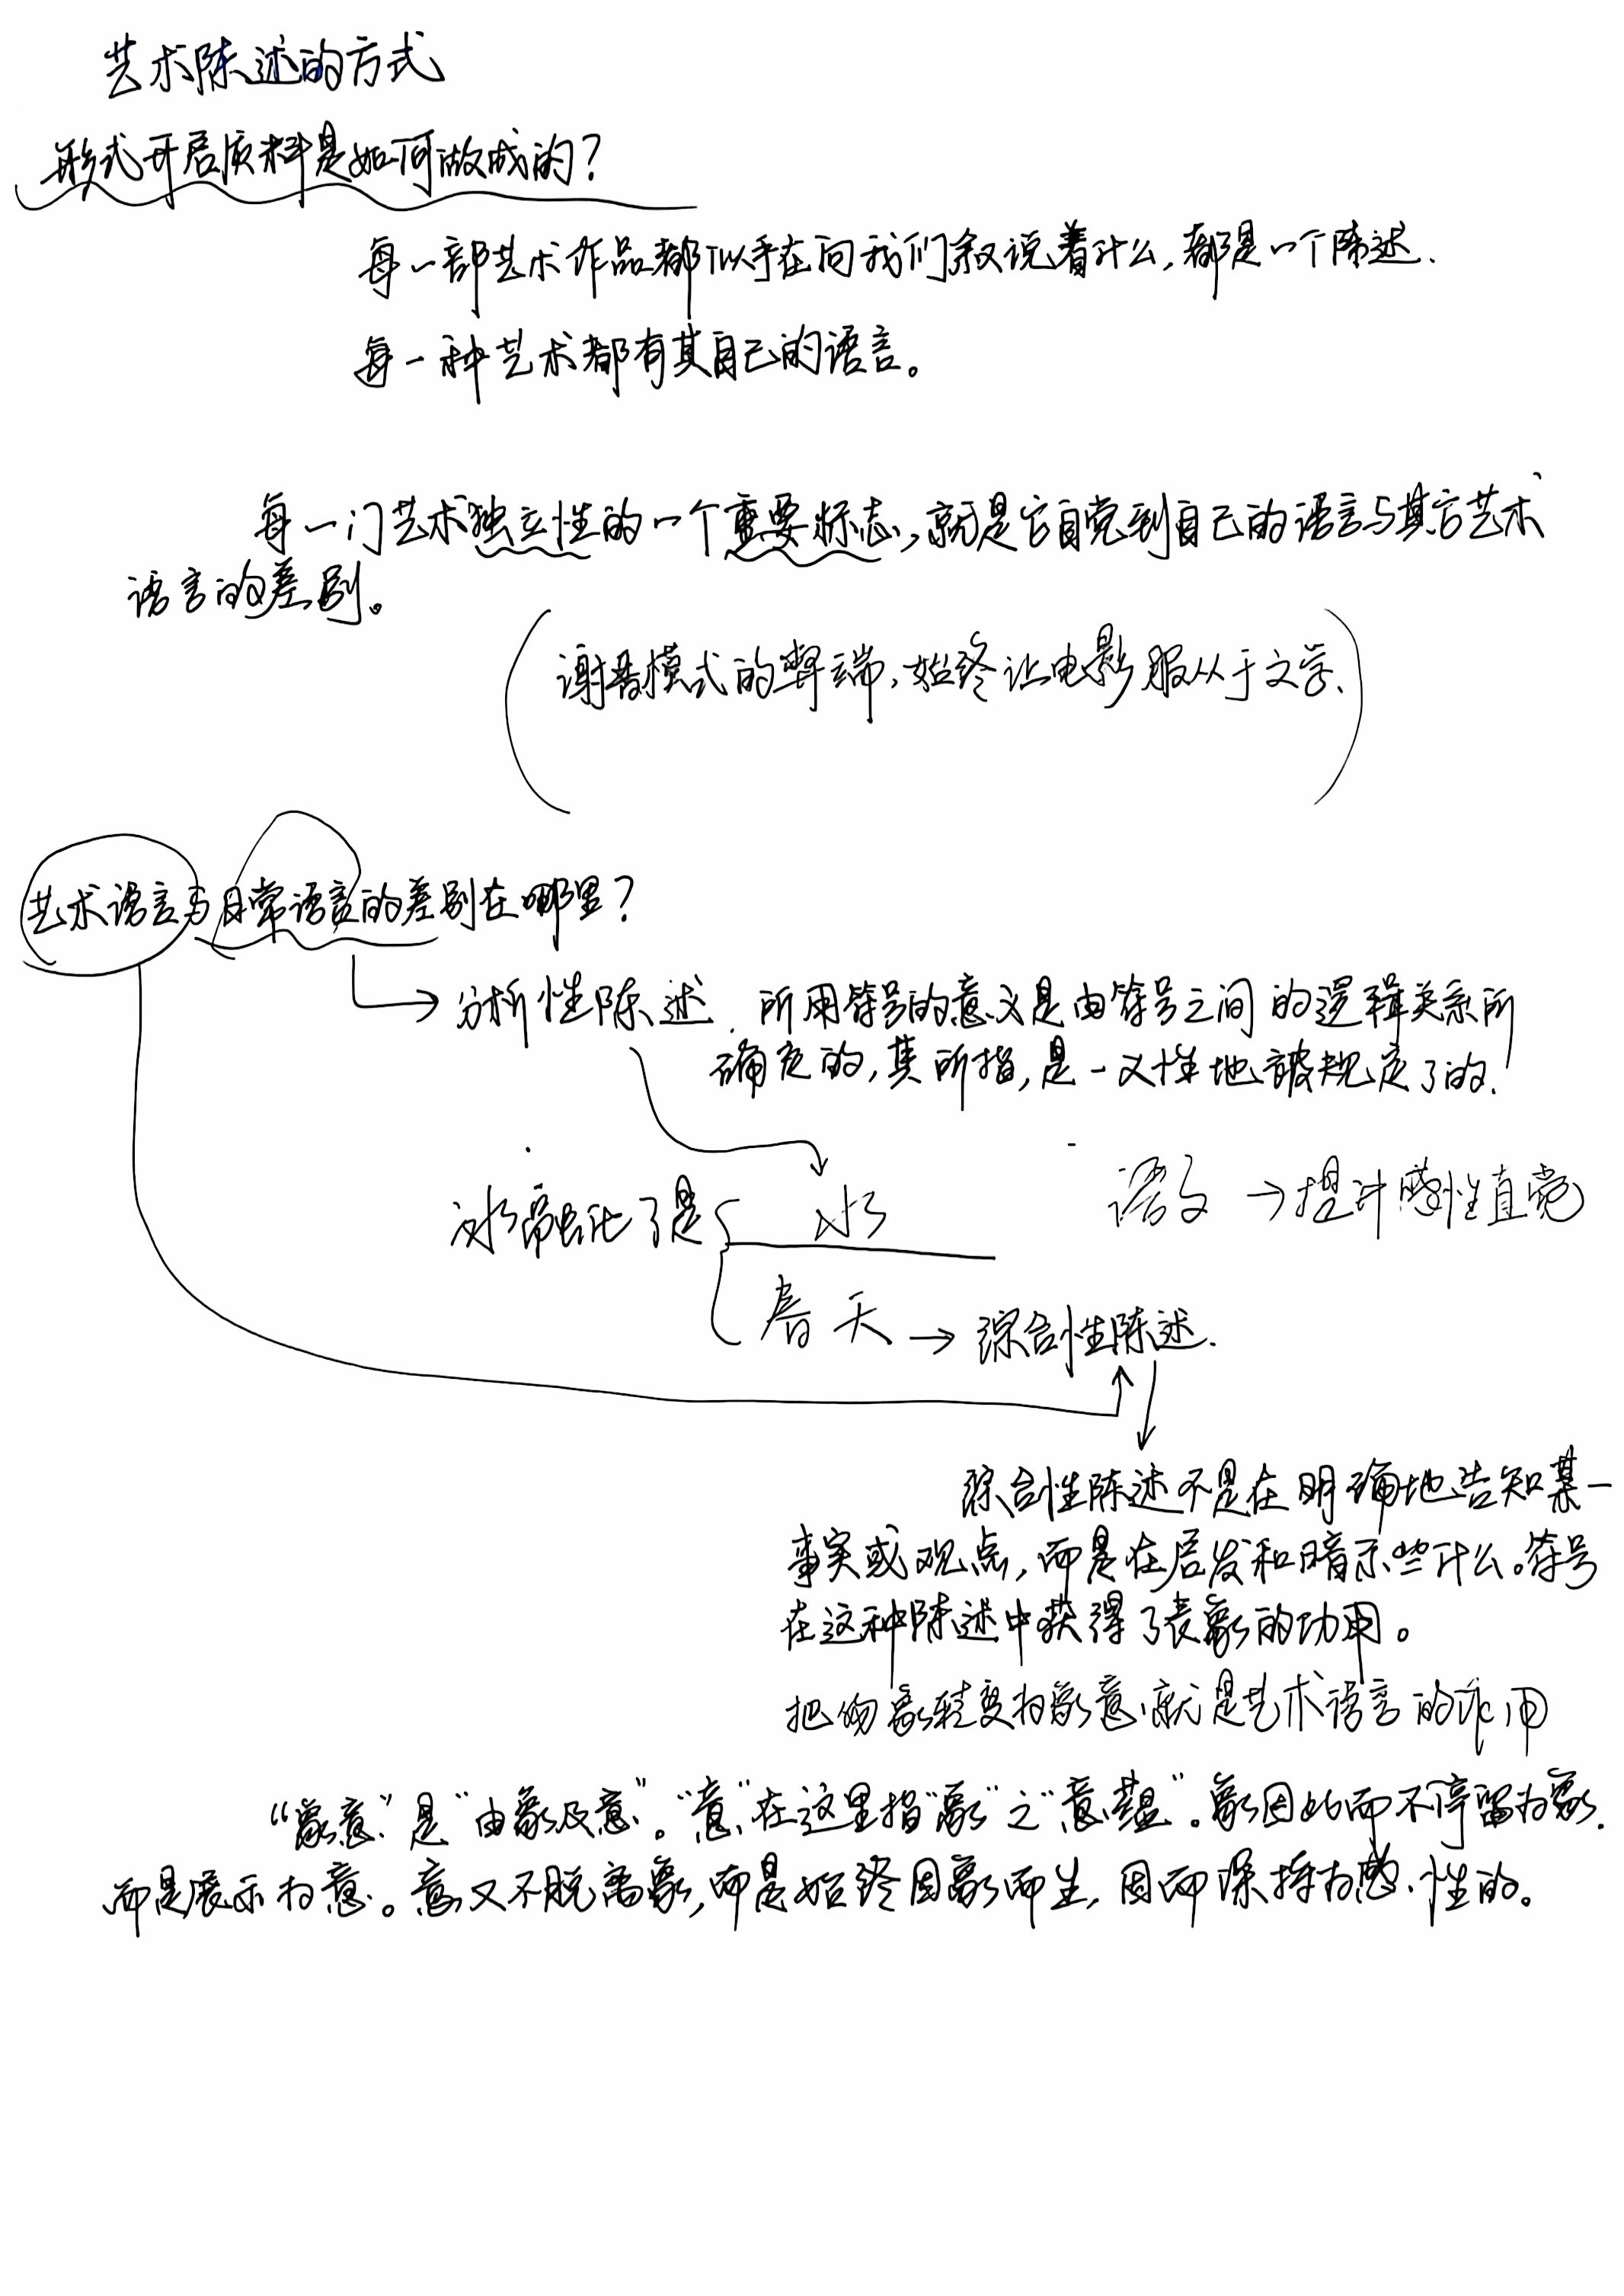 艺术陈述的方式
形式开启质料是如何做成的?
每一部艺术作品都似乎在向我们叙说着什么,都是一个陈述.
每一种艺术都有其自己的语言。
每一门艺术独立性的一个重要标志,就是它自觉到自己的语言与其它艺术
语言的差别。
谢晋模式的弊端,始终让电影服从于文学、
艺术语言与日常语言的差别在哪里?
分析性陈述. 所用符号的意义是由符号之间的逻辑关系所
确定的,其所指,是一义性地被规定了的.
语文→提升感性直觉
冰雪融化了是
水
春天→综合性陈述.
综合性陈述不是在明确地告知某一
事实或观点,而是在启发和暗示些什么。符号
在这种陈述中获得了表象的功用。
把物象转变为象意,就是艺术语言的作用
“象意”是“由象及意”。“意”在这里指“象”之“意蕴”。象因此而不停留为象.
而是展示为意。意又不脱离象,而是始终因象而生,因而保持为感性的。